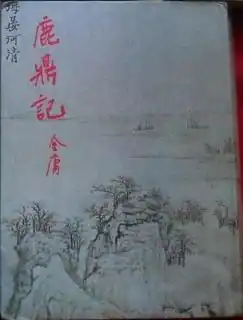 海晏河清
鹿鼎記
金庸